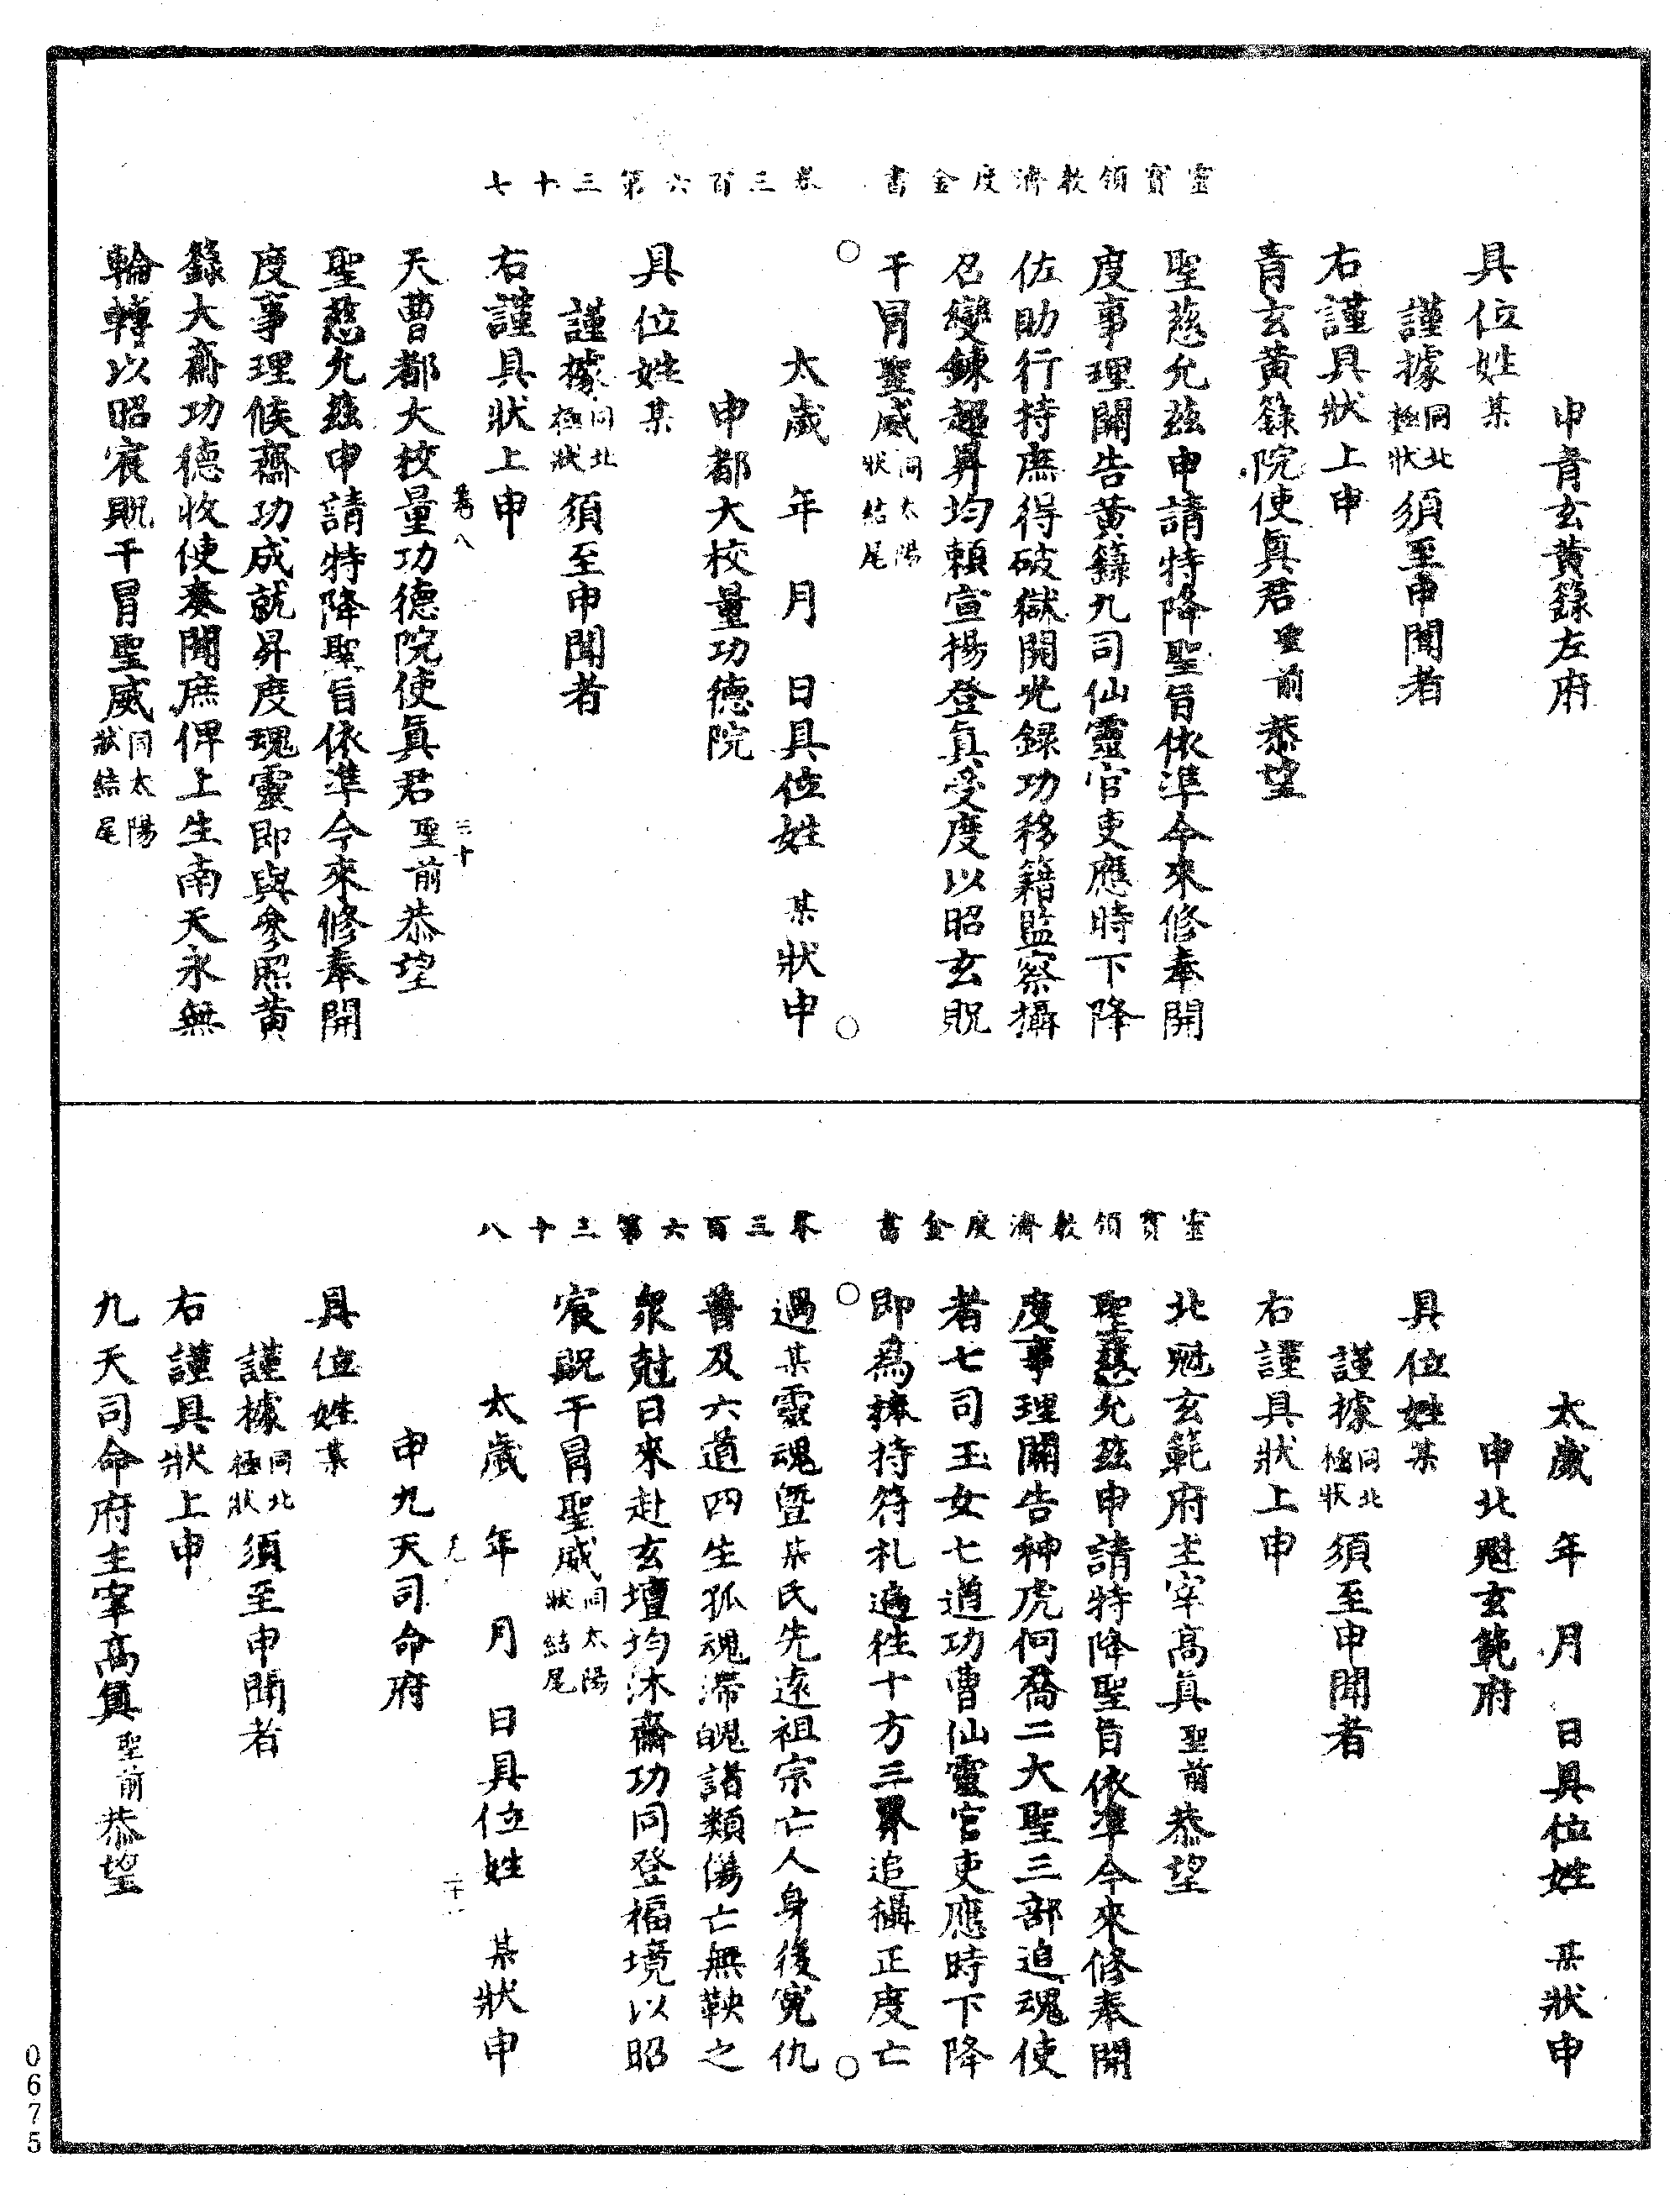 靈寶領教濟度金書　卷三百六第三十七
申青玄黃籙左府
具位姓某
謹據同北極狀須至申聞者
右謹具狀上申
青玄黃籙院使眞君聖前恭望
聖慈允茲申請特降聖旨依準今來修奉開
度事理關告黃籙九司仙靈官吏應時下降
佐助行持庶得破獄開光錄功移籍監察攝
召變鍊超昇均賴宣揚登眞受度以昭玄貺
干冒聖威同太陽狀結尾
太歲　年　月　日具位姓　某狀申
申都大校量功德院
具位姓某
謹據同北極狀須至申聞者
右謹具狀上申
天曹都大校量功德院使眞君聖前恭望
聖慈允茲申請特降聖旨依準今來修奉開
度事理候齋功成就昇度魂靈即與參照黃
籙大齋功德收使奏聞庶俾上生南天永無
輪轉以昭宸貺干冒聖威同太陽狀結尾
靈寶領教濟度金書　卷三百六第三十八
太歲　年　月　日具位姓　某狀申
申北魁玄範府
具位姓某
謹據同北極狀須至申聞者
右謹具狀上申
北魁玄範府主宰高眞聖前恭望
聖慈允茲申請特降聖旨依準今來修奉開
度事理關告神虎何喬二大聖三部追魂使
者七司玉女七道功曹仙靈官吏應時下降
即爲捧持符札遍徃十方三界追攝正度亡
過某靈魂曁某氏先遠祖宗亡人身後寃仇
普及六道四生孤魂滯魄諸類傷亡無鞅之
衆尅日來赴玄壇均沐齋功同登福境以昭
宸貺干冒聖威同太陽狀結尾
太歲　年　月　日具位姓　某狀申
申九天司命府
具位姓某
謹據同北極狀須至申聞者
右謹具狀上申
九天司命府主宰高眞聖前恭望
0675